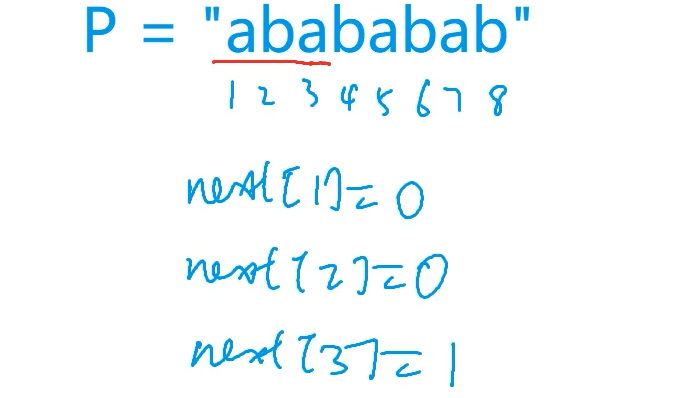 P = "abababab"
1 2 3 4 5 6 7 8
next[1]=0
next[2]=0
next[3]=1